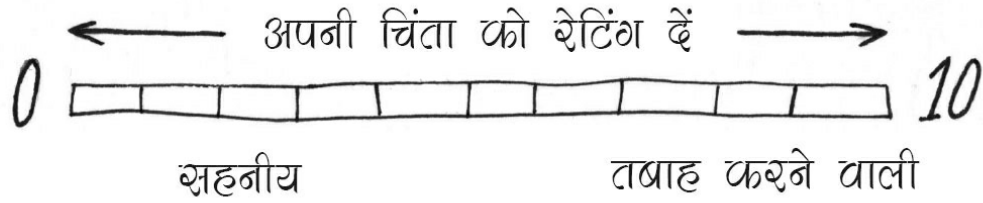 अपनी चिंता को रेटिंग दें
0 10
सहनीय तबाह करने वाली